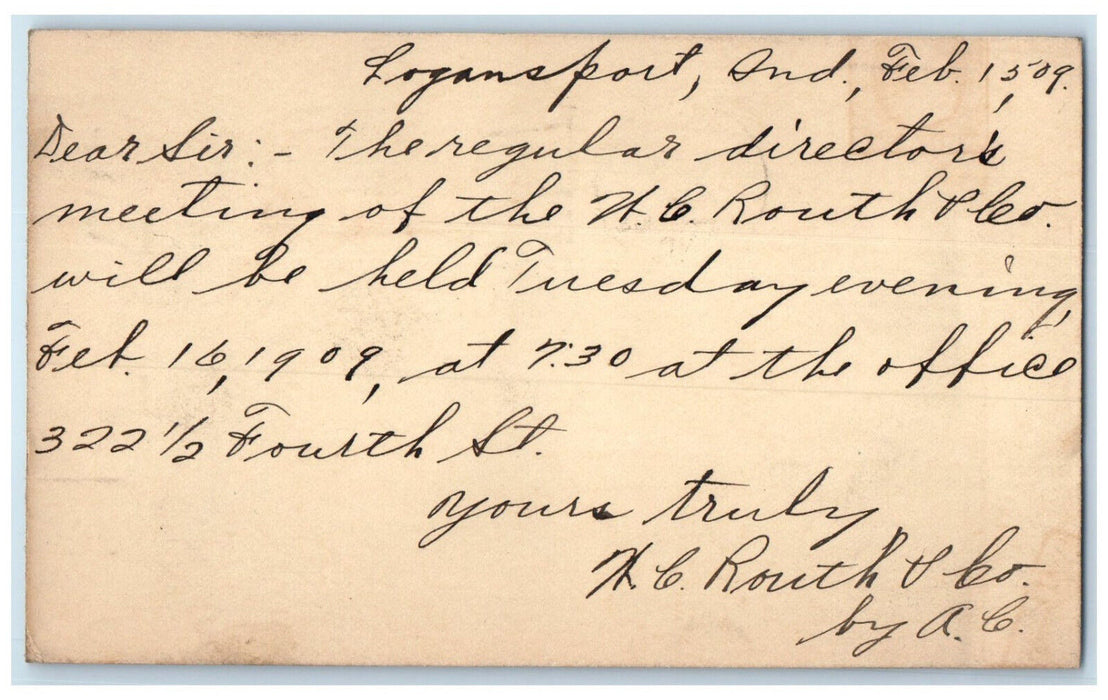 Logansport, Ind., Feb. 15, 09.
Dear Sir:- The regular director's
meeting of the W. C. Routh & Co.
will be held Tuesday evening,
Feb. 16, 1909, at 7:30 at the office
322 1/2 Fourth St.
Yours truly,
W. C. Routh & Co.
by A. C.